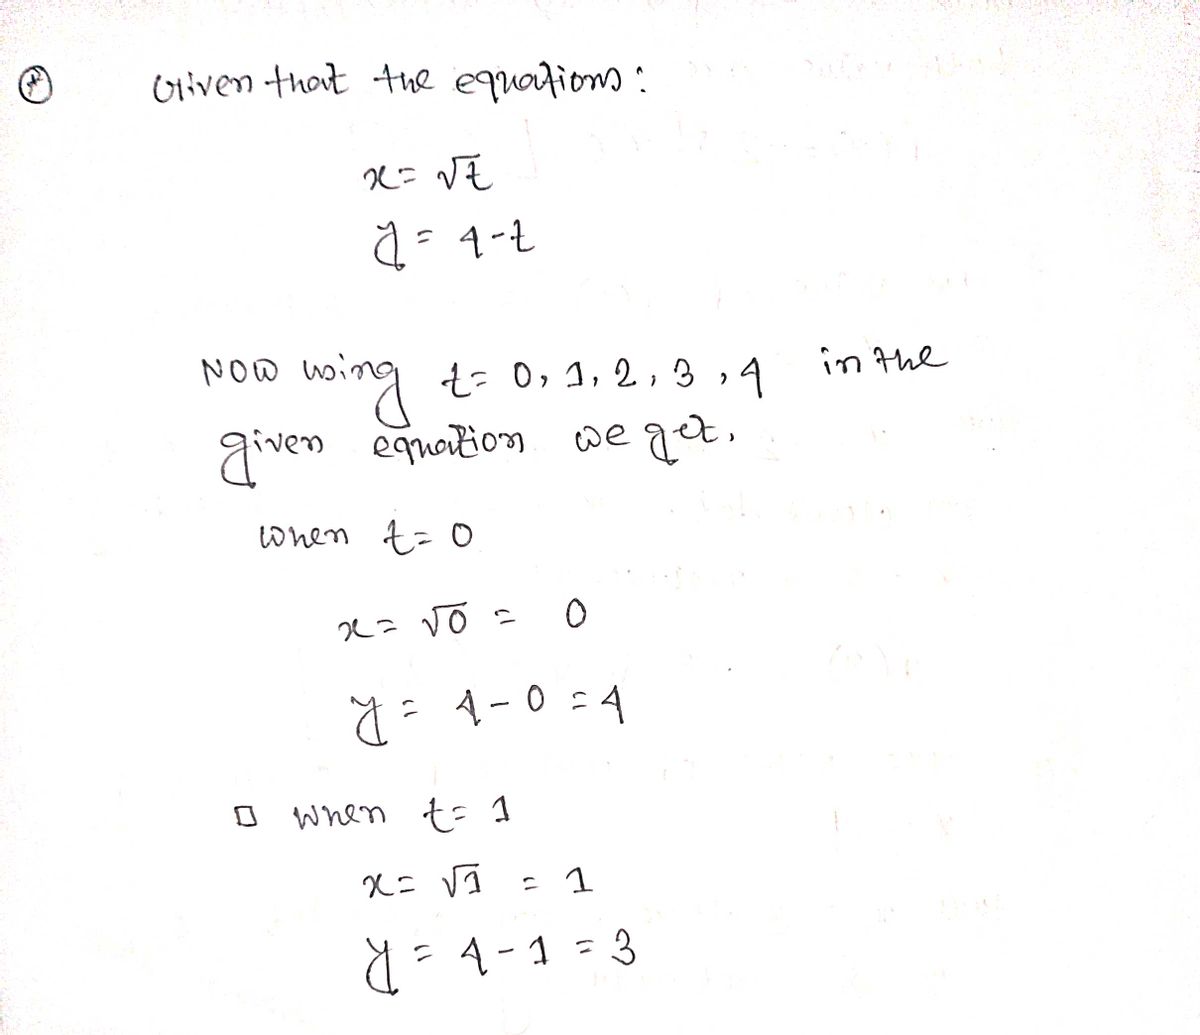 Given that the equations:
x = √t
y = 4-t
NOW using t = 0, 1, 2, 3, 4 in the
given equation we get,
when t = 0
x = √0 = 0
y = 4-0 = 4
□ when t = 1
x = √1 = 1
y = 4-1 = 3